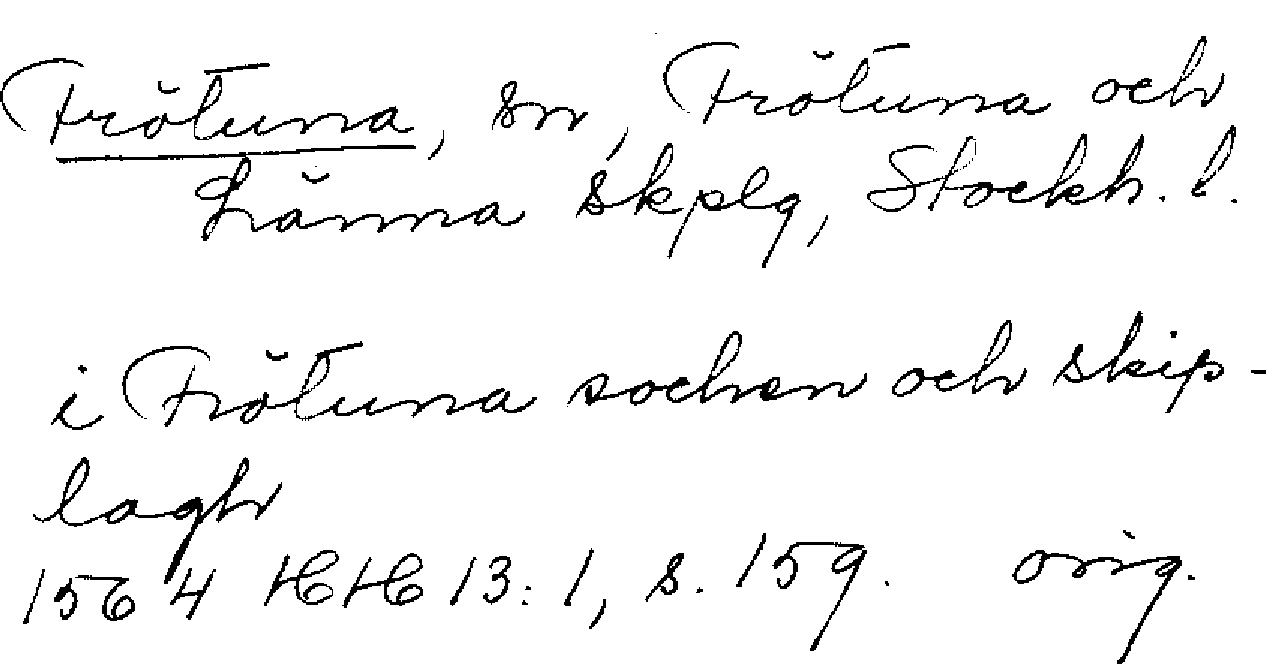 Frötuna, sn, Frötuna och
Länna skplg, Stockh. l.
i Frötuna sochen och skip-
lagh
1564 HH 13:1, s. 159. orig.